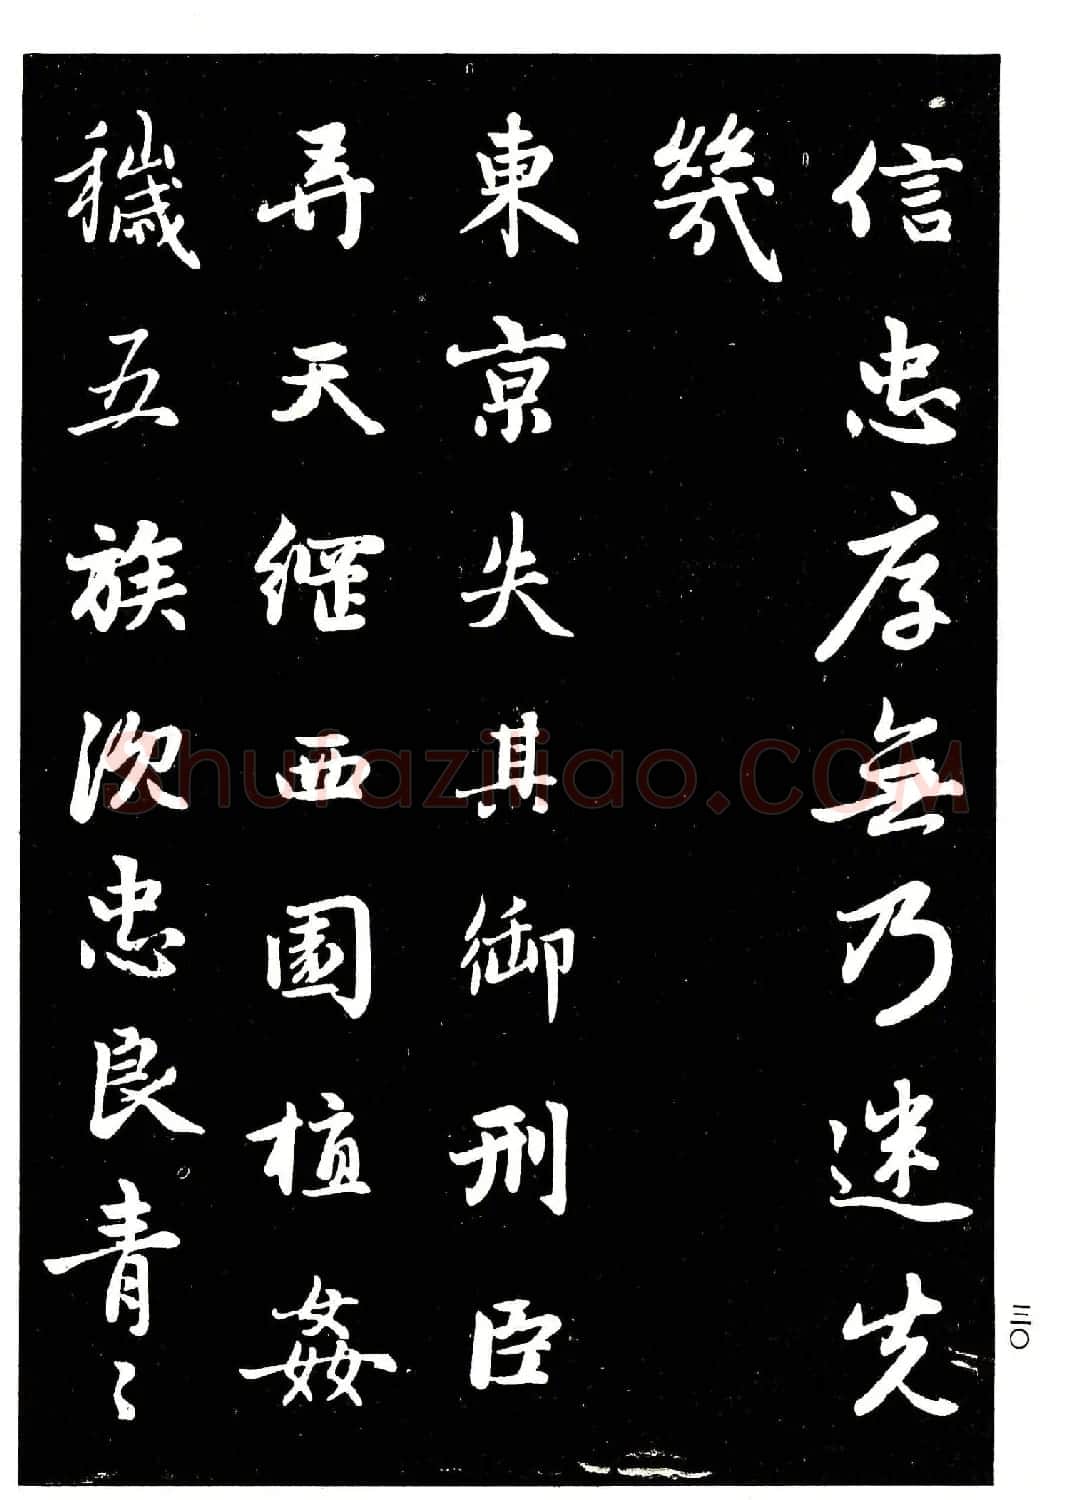 信忠序無乃迷先
幾
東京失其御刑臣
弄天綱西園植姦
穢五族沉忠良青々
三〇
shufaziliao.COM